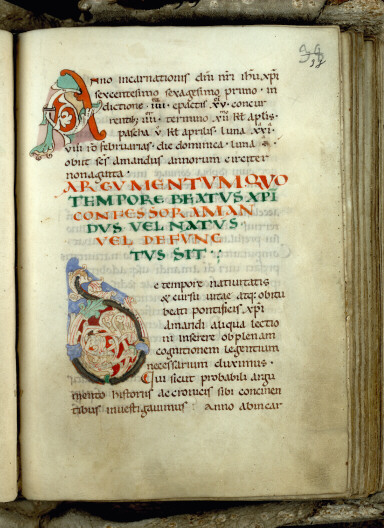 39
38
Anno incarnationis dni nri ihu xpi
sexcentesimo sexagesimo primo in
dictione iiii epactis xv concur
rentib; iiii termino xii kl aplis
pascha v kl aprilis luna xxi
viii id februarias die dominica luna
obiit scs amandus annorum circiter
nonaginta
ARGUMENTUM QUO
TEMPORE BEATUS XPI
CONFESSOR AMAN
DUS VEL NATUS
VEL DEFUNC
TUS SIT
De tempore nativitatis
& cursu vitae atq; obitu
beati pontificis xpi
amandi aliqua lectio
ni inserere ob plenam
cognitionem legentium
necessarium duximus
Qui sicut probabili argu
mento historiis ac cronicis sibi concinen
tibus investigavimus anno ab incar